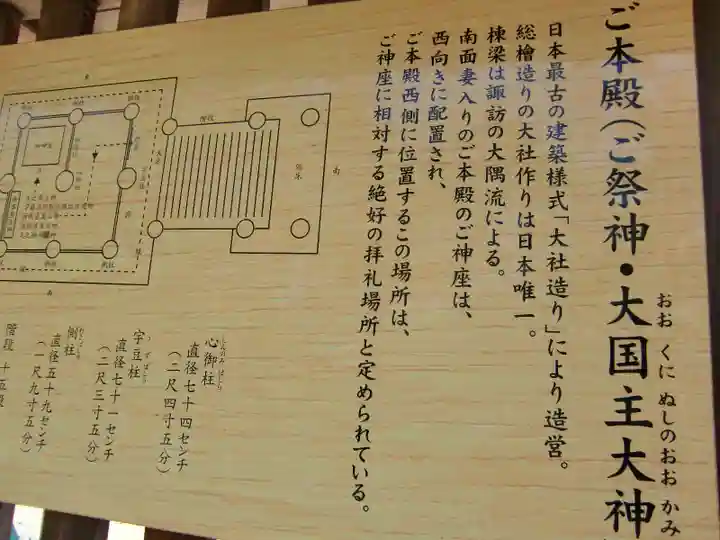 ご本殿(ご祭神・大国主大神
おおくにぬしのおおかみ
日本最古の建築様式「大社造り」により造営。
総檜造りの大社作りは日本唯一。
棟梁は諏訪の大隅流による。
南面妻入りのご本殿のご神座は、
西向きに配置され、
ご本殿西側に位置するこの場所は、
ご神座に相対する絶好の拝礼場所と定められている。
南
階段
心御柱
直径七十四センチ
(二尺四寸五分)
宇豆柱
うずばしら
直径七十一センチ
(二尺三寸五分)
側柱
直径五十九センチ
(一尺九寸五分)
階段 十五段